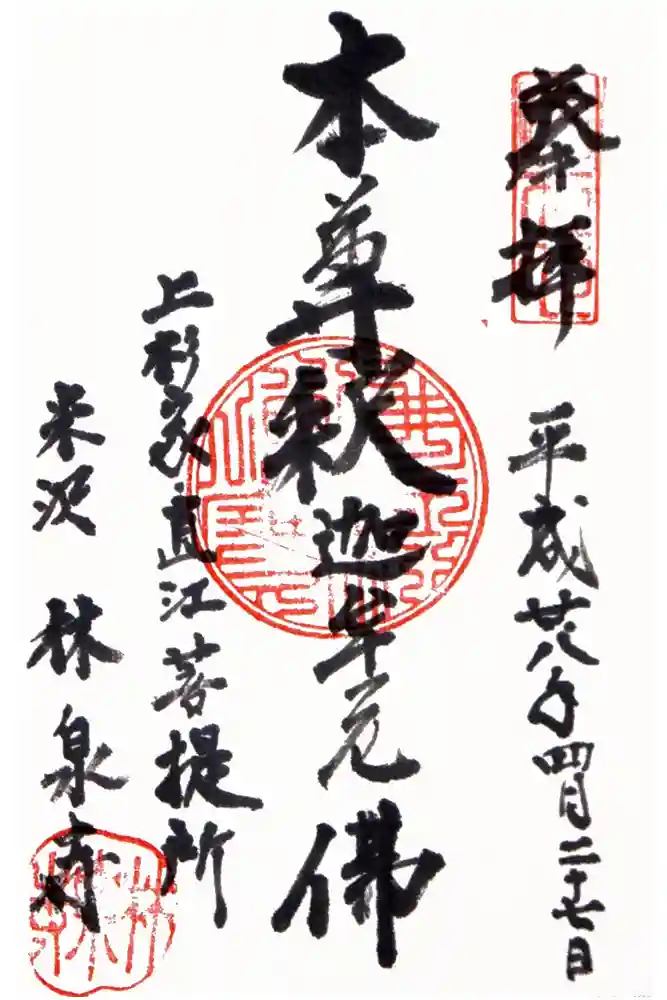 奉拝
平成廿八年四月二十七日
本尊釈迦牟尼佛
上杉家直江菩提所
米沢 林泉寺